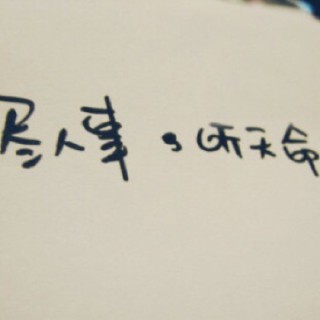 尽人事，听天命